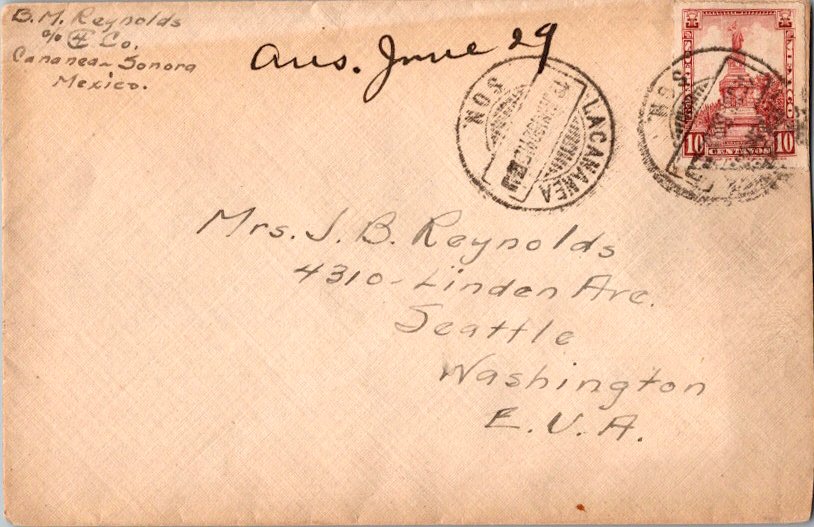 B. M. Reynolds
Co.
Cananea - Sonora
Mexico.
Ans. June 29
SON.
LACANANEA
SON.
MEXICO
10 CENTAVOS 10
Mrs. J. B. Reynolds
4310 - Linden Ave.
Seattle
Washington
E. U. A.